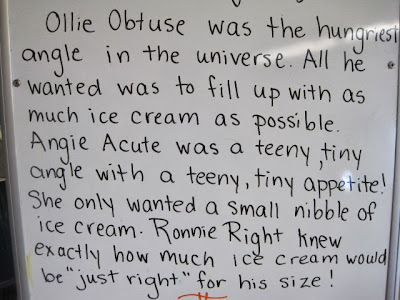 Ollie Obtuse was the hungriest
angle in the universe. All he
wanted was to fill up with as
much ice cream as possible.
Angie Acute was a teeny, tiny
angle with a teeny, tiny appetite!
She only wanted a small nibble of
ice cream. Ronnie Right knew
exactly how much ice cream would
be "just right" for his size!